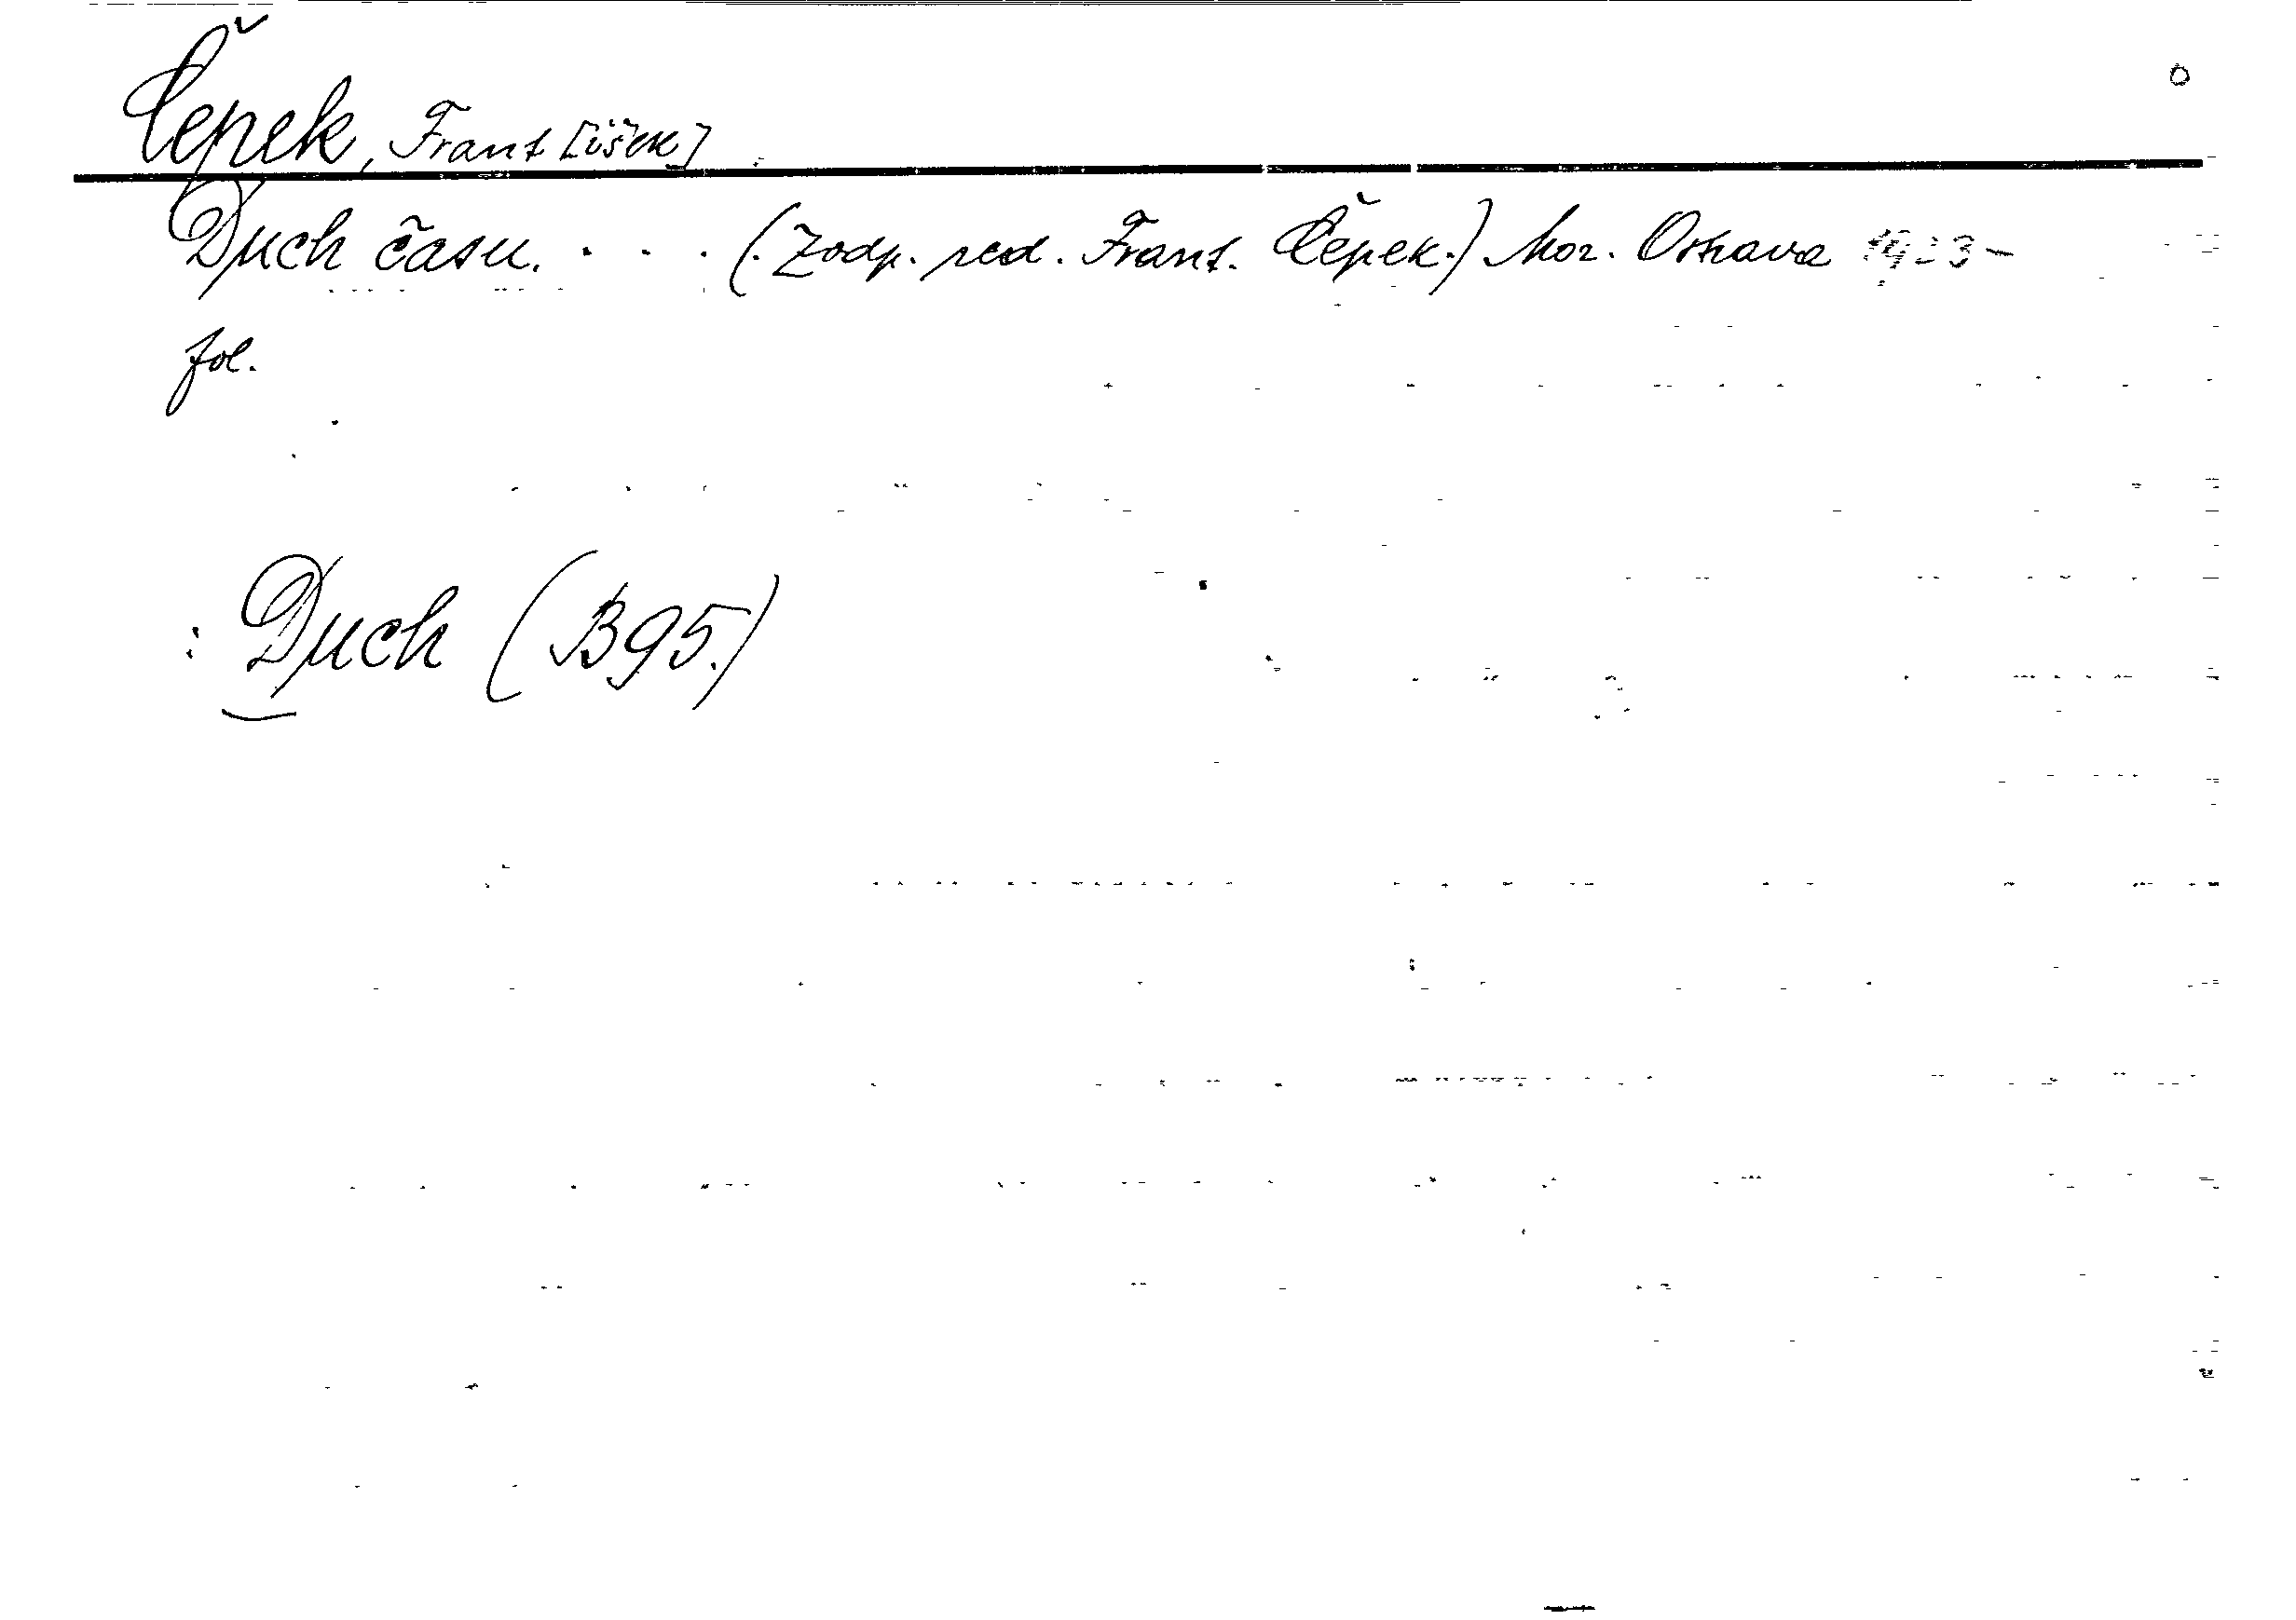 Čepek, Frant[išek]
Duch času. . . . (. Zodp. red. Frant. Čepek.) Mor. Ostrava 1923-
fol.
: Duch (B95.)